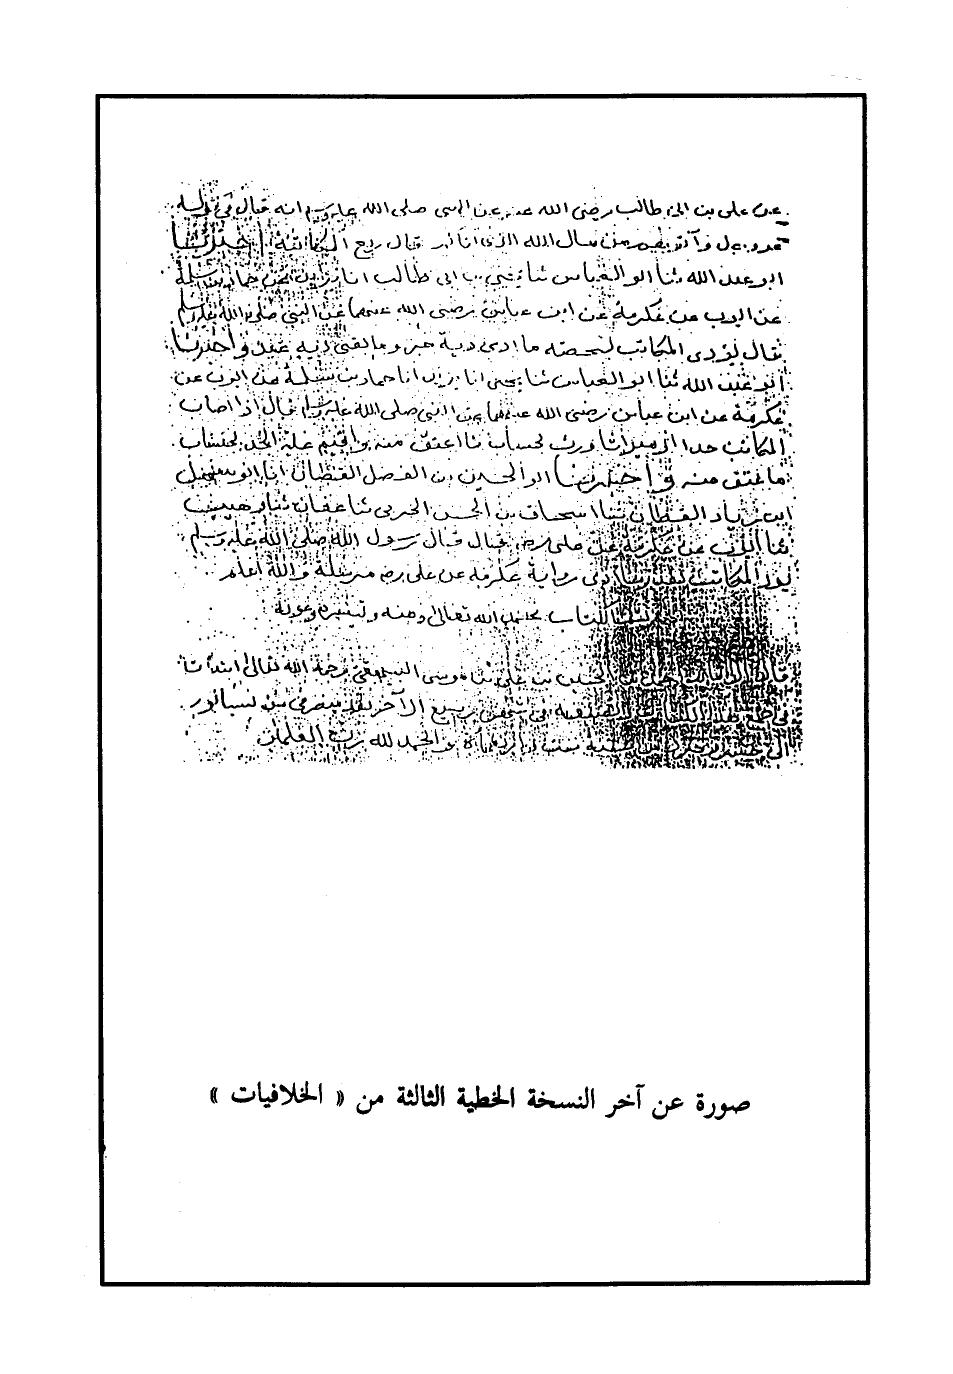 عن على بن ابى طالب رضى الله عنه عن النبى صلى الله عليه وسلم انه قال فى قوله
وآتوهم من مال الله الذى اتاكم قال ربع الكتابة اخبرنا
ابو عبد الله ثنا ابو العباس ثنا يحيى بن ابى طالب انا يزيد بن حماد بن سلمة
عن ايوب عن عكرمة عن ابن عباس رضى الله عنهما عن النبى صلى الله عليه وسلم
قال يودى المكاتب بحصة ما ادى دية حر وما بقى دية عبد واخبرنا
ابو عبد الله ثنا ابو العباس ثنا يحيى انا يزيد انا حماد بن سلمة عن ايوب عن
عكرمة عن ابن عباس رضى الله عنهما عن النبى صلى الله عليه وسلم قال اذا اصاب
المكاتب حدا او ميراثا ورث بحساب ما اعتق منه واقيم عليه الحد بحساب
ما عتق منه واخبرنا ابو الحسين بن الفضل القطان انا ابو سهل
ابن زياد القطان ثنا اسحاق بن الحسن الحربى ثنا عفان ثنا وهيب
ثنا ايوب عن عكرمة عن على رضه قال قال رسول الله صلى الله عليه وسلم
يودى المكاتب رواية عكرمة عن على رضه مرسلة والله اعلم
الكتاب بحمد الله تعالى ومنه وتيسيره وعونه
احمد بن الحسين بن على بن موسى البيهقى رحمة الله تعالى ابتدات
فى هذا الكتاب فى شهر ربيع الآخر من نيسابور
الى خسروجرد سنة والحمد لله رب العلمين
صورة عن آخر النسخة الخطية الثالثة من « الخلافيات »